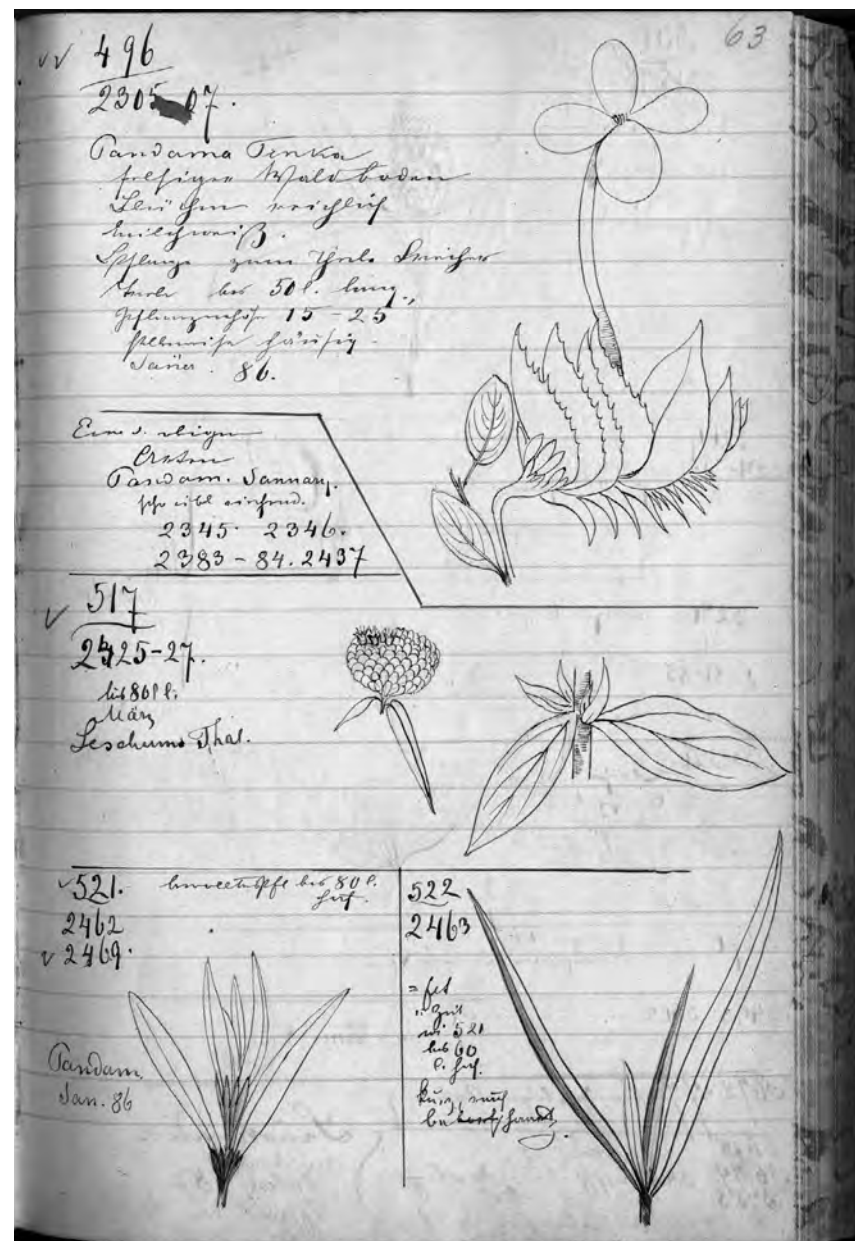 63
496
2305-07.
Pandama Tenka
felsiger Waldboden
Blüthen reichlich
milchweiß.
Pflanze zum Theile
bis 50 l. lang.,
Pflanzenhöhe 15 – 25
stellenweise häufig.
Jäner. 86.
Eine v. obigen
Arten
Pandam. Januar.
sehr übel riechend.
2345. 2346.
2383 – 84. 2437
517
2425-27.
bis 80 l.
März
Leschumo Thal.
521. bis 80 l.
2462
2469.
Pandam.
Jan. 86
522
2463
521
bis 60
kurz, rauh